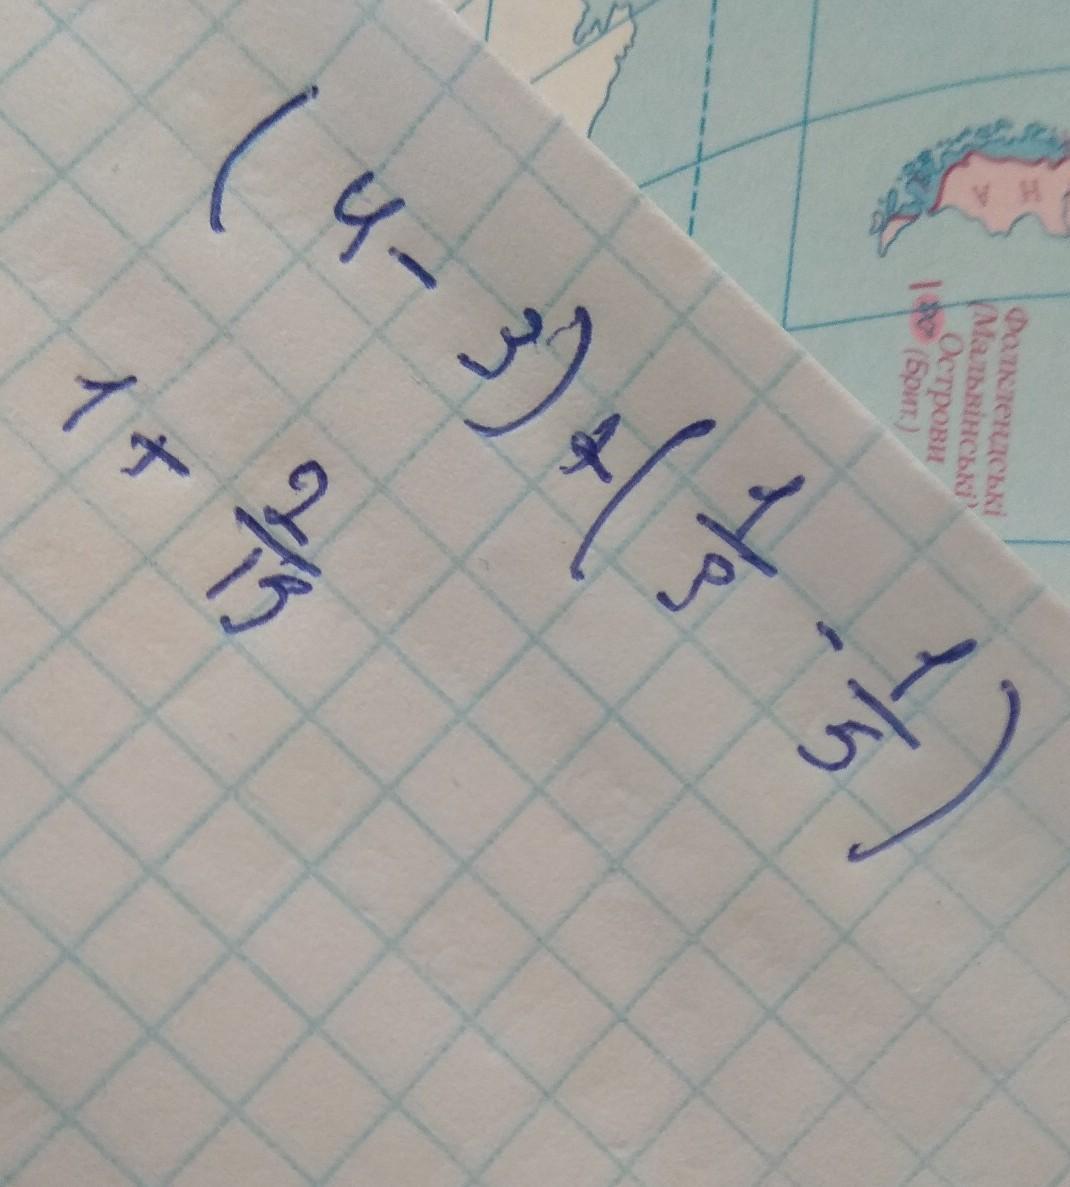 (4-3)+(1/3-1/5)
1+2/15
Фолклендські
(Мальвінські)
Острови
(Брит.)
Н
А